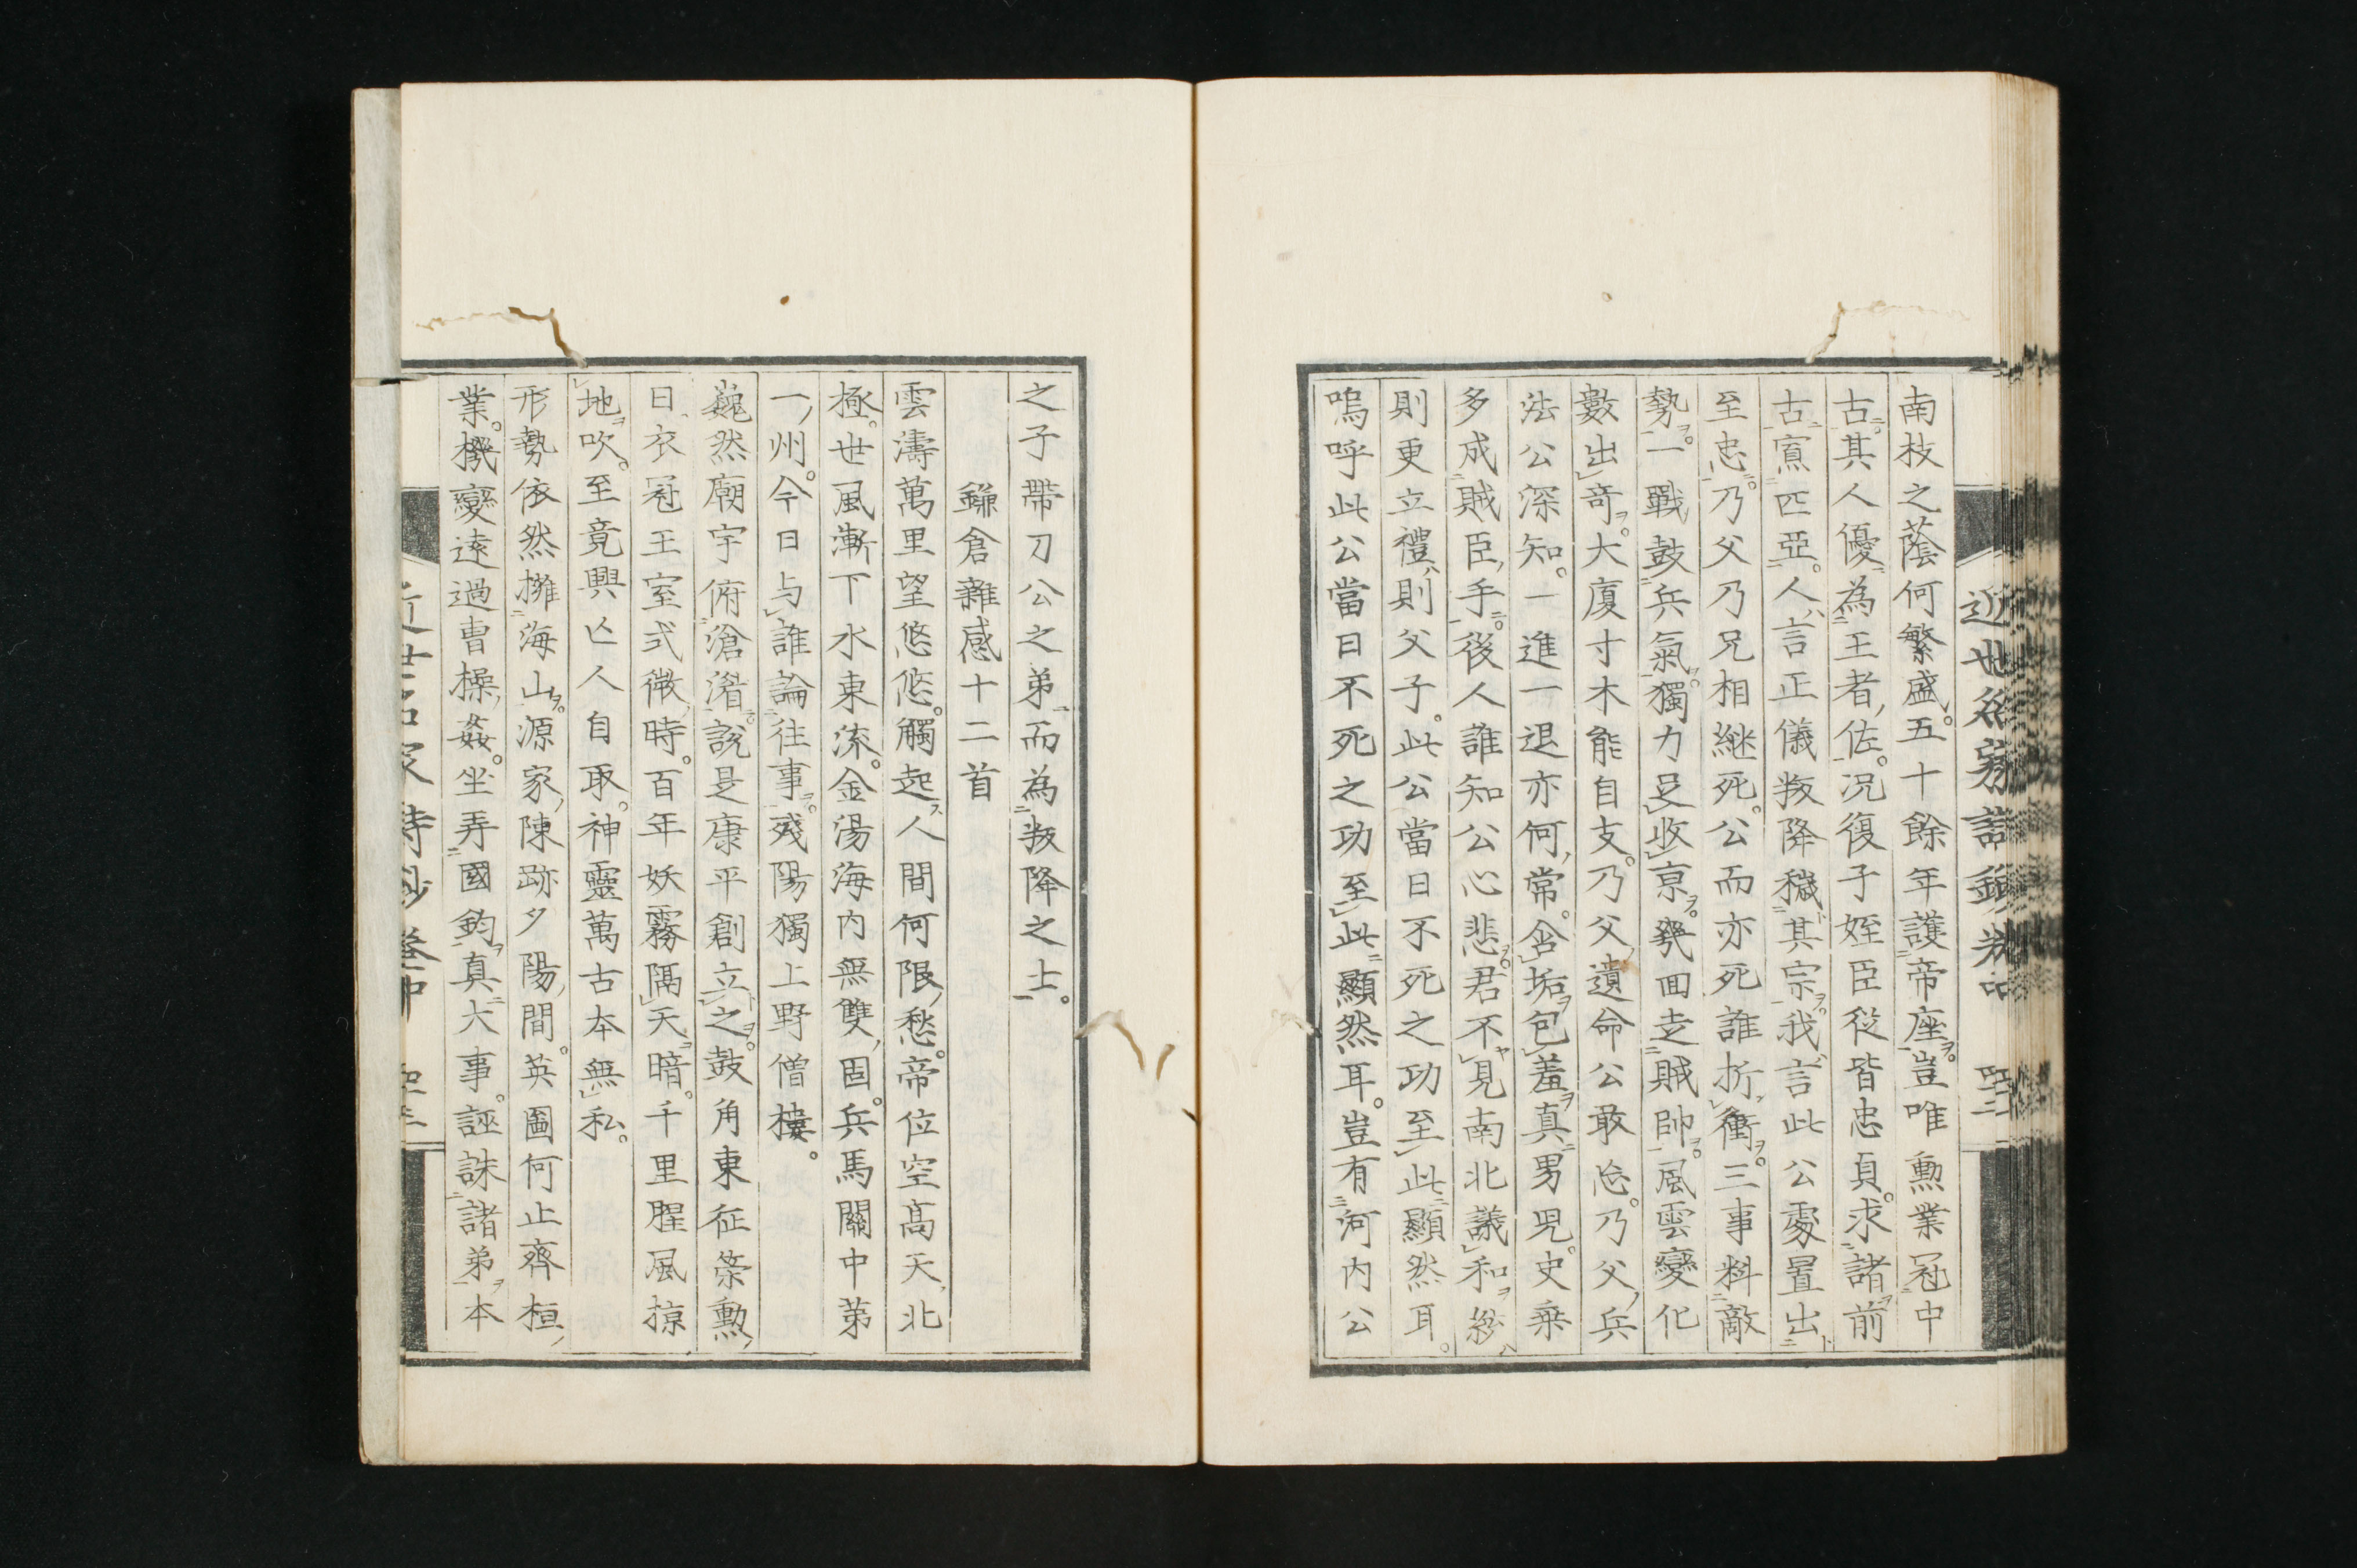 近世名家詩鈔 卷中 四十二
南枝之蔭何繁盛。五十餘年護帝座。豈唯勲業冠中
古。其人優為王者佐。況復子姪臣從皆忠貞。求諸前
古寡匹亞。人言正儀叛降穢其宗。我言此公處置出
至忠。乃父乃兄相継死。公而亦死誰折衝。三事料敵
勢。一戰鼓兵氣。獨力足收京。幾回走賊帥。風雲變化
數出奇。大廈寸木能自支。乃父遺命公敢忘。乃父兵
法公深知。一進一退亦何常。含垢包羞真男児。史乘
多成賊臣手。後人誰知公心悲。君不見南北議和紛
則更立禮則父子。此公當日不死之功至此顯然耳。
嗚呼此公當日不死之功至此顯然耳。豈有河内公
之子帶刀公之弟而為叛降之士。
鎌倉雜感十二首
雲濤萬里望悠悠。觸起人間何限愁。帝位空高天北
極。世風漸下水東流。金湯海内無雙固。兵馬關中第
一州。今日与誰論往事。殘陽獨上野僧樓。
巍然廟宇俯滄濳。説是康平創立之。鼓角東征策勲
日。衣冠王室式微時。百年妖霧隔天暗。千里腥風掠
地吹。至竟興亡人自取。神靈萬古本無私。
形勢依然擁海山。源家陳跡夕陽間。英圖何止齊桓
業。機變遠過曹操姦。坐弄國鈞真大事。誣誅諸弟本
近世名家詩鈔 卷中